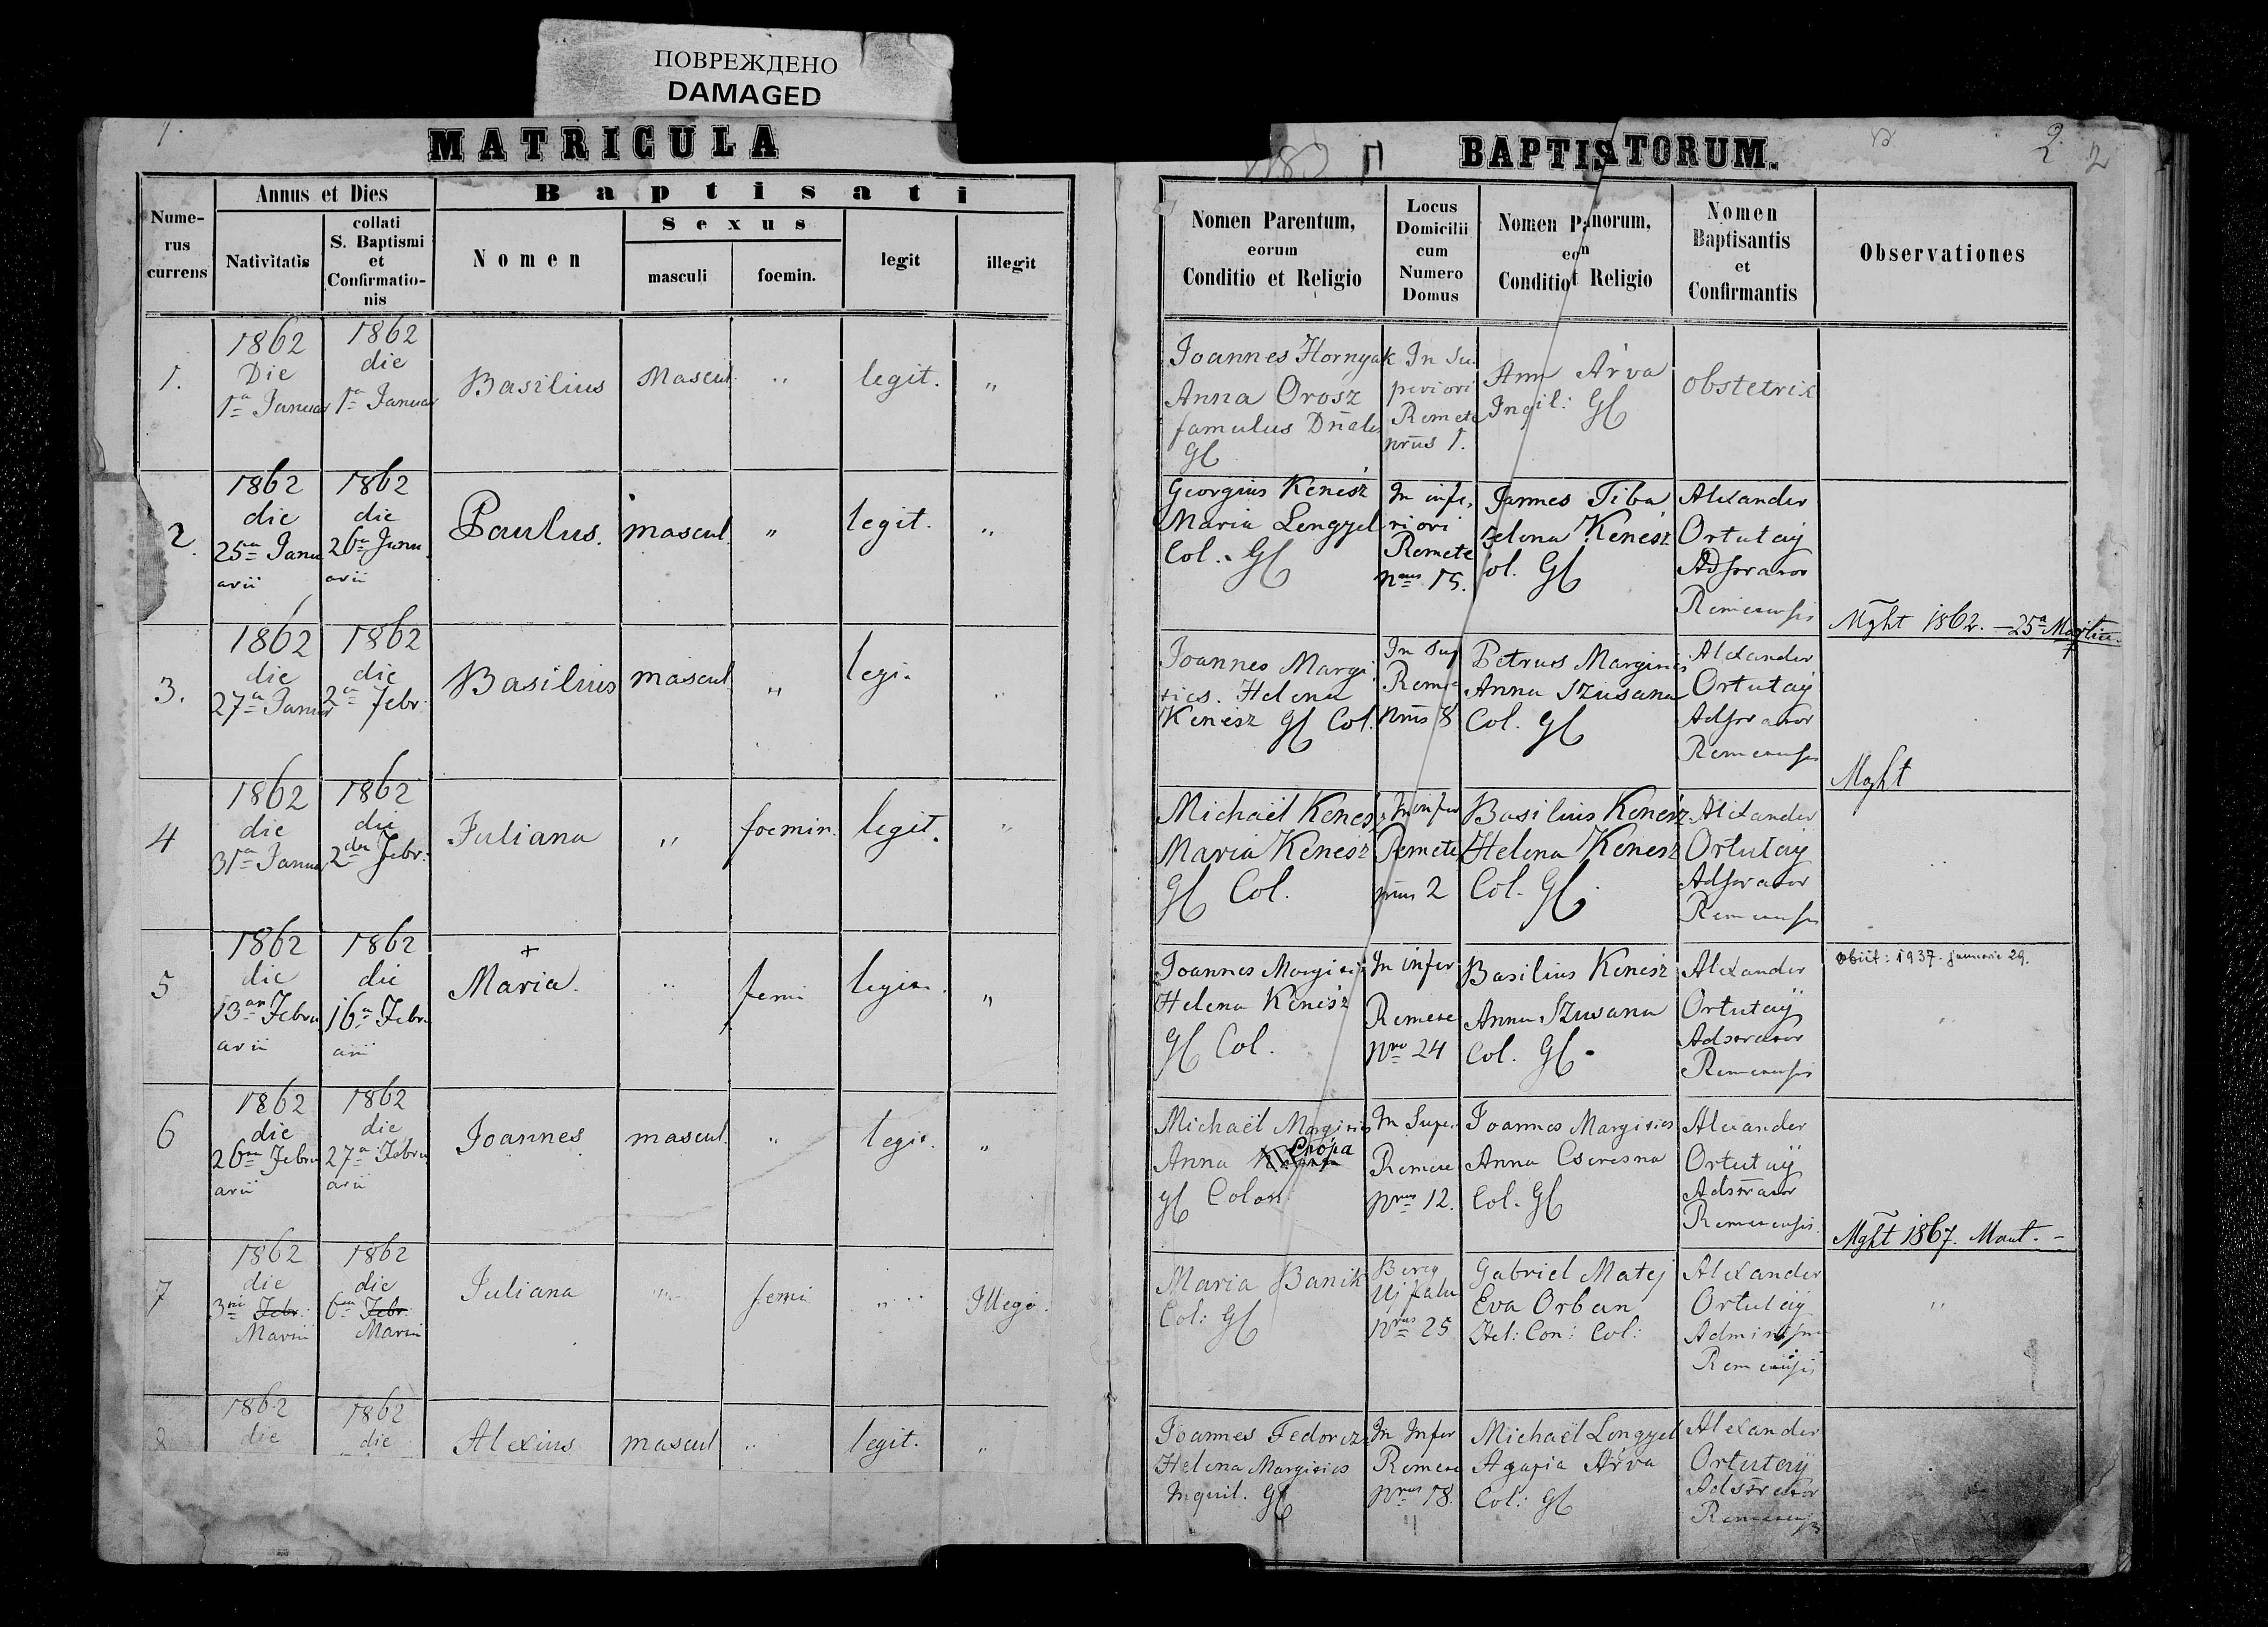 ПОВРЕЖДЕНО
DAMAGED
1.
MATRICULA
Numerus currens
Annus et Dies
Nativitatis
collati S. Baptismi et Confirmationis
Baptisati
Nomen
Sexus
masculi
foemin.
legit
illegit
1.
1862
Die
1a Januar
1862
die
1a Januar
Basilius
Mascul.
"
legit.
"
2.
1862
die
25a Janu
arii
1862
die
26a Janu
arii
Paulus.
mascul.
"
legit.
"
3.
1862
die
27a Januar
1862
die
2a Febr.
Basilius
mascul.
"
legi.
"
4
1862
die
31a Januar
1862
die
2da Febr.
Juliana
"
foemin.
legit.
"
5
1862
die
13an Febru
arii
1862
die
16a Febru
arii
+
Maria.
"
femi
legit.
"
6
1862
die
26a Febru
arii
1862
die
27a Febru
arii
Joannes
mascul.
"
legit.
"
7
1862
die
Febr.
Martii
1862
die
Febr.
Martii
Juliana
"
femi
"
Illegi.
1862
die
1862
die
Alexius
mascul
"
legit.
"
BAPTISATORUM.
2
2
Nomen Parentum,
eorum
Conditio et Religio
Locus
Domicilii
cum
Numero
Domus
Nomen Panorum,
Conditio et Religio
Nomen
Baptisantis
et
Confirmantis
Observationes
Joannes Hornyak
Anna Orosz
famulus Dnalis
Gl
In Su
periori
Remete
nrus 1.
Ann Árva
Inqil: Gl
obstetrix
Georgius Kenész
Maria Lengyel
Col. Gl
In infe
riori
Remete
nrus 15.
Joannes Tiba
Helena Kenész
Col. Gl
Alexander
Ortutaÿ
Adstrator
Remetensis
Mght 1862. – 25a Martii
Joannes Margi
tics. Helena
Kenész Gl Col.
In Sup
Remete
nrus 8
Petrus Margitics
Anna Szusana
Col. Gl
Alexander
Ortutaÿ
Adstrator
Remetensis
Mght
Michaël Kenész
Maria Kenész
Gl Col.
In infer
Remete
nrus 2
Basilius Kenész
Helena Kenész
Col. Gl.
Alexander
Ortutaÿ
Adstrator
Remetensis
Joannes Margitics
Helena Kenész
Gl Col.
In infer
Remete
Nro 24
Basilius Kenész
Anna Szusana
Col. Gl.
Alexander
Ortutaÿ
Adstrator
Remetensis
Obiit: 1937. januarii 29.
Michaël Margitics
Anna Csópa
Gl Colon.
In Supe.
Remete
nrus 12.
Joannes Margitics
Anna Cseresna
Col. Gl
Alexander
Ortutaÿ
Adstrator
Remetensis
Mght 1867. Maut. –
Maria Banik
Col: Gl
Bereg
Uj falu
nrus 25
Gabriel Matej
Eva Orban
Hel: Con: Col:
Alexander
Ortutaÿ
Remetensis
Joannes Fedorcz
Helena Margitics
Inquil. Gl
In Infer
Remete
nrus 18.
Michaël Lengyel
Agapia Árva
Col: Gl
Alexander
Ortutaÿ
Adstrator
Remetensis